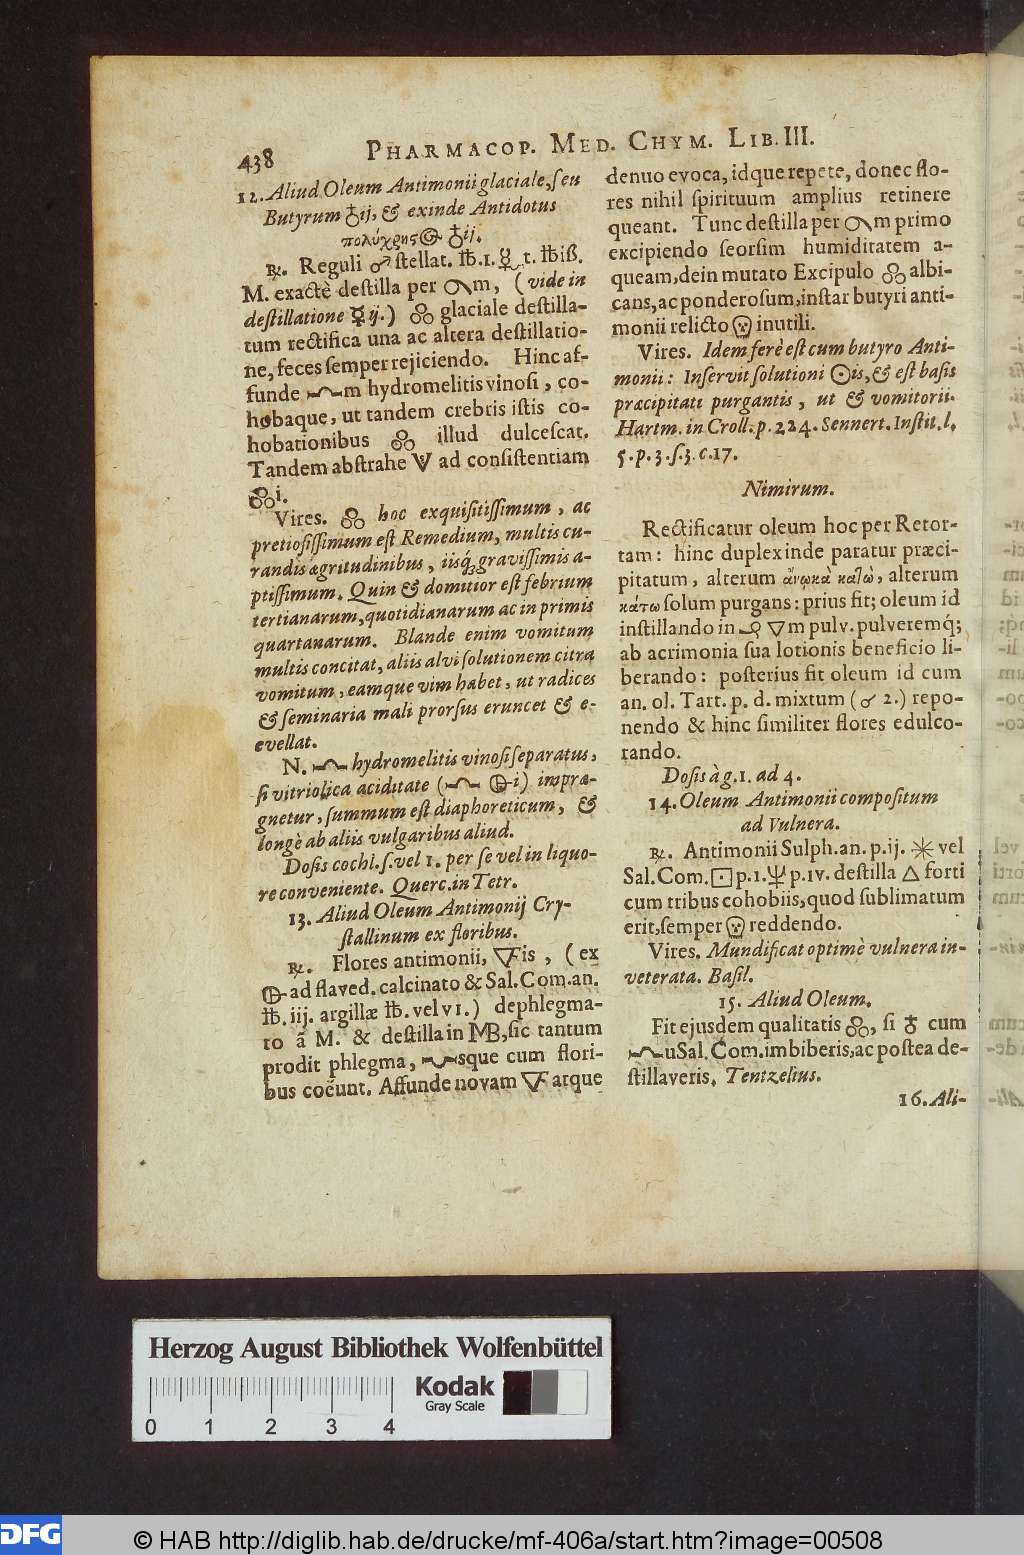 438
PHARMACOP. MED. CHYM. LIB. III.
12. Aliud Oleum Antimonii glaciale, ſeu
Butyrum ♁ij, & exinde Antidotus
♁ij.
℞. Reguli ♂ ſtellat. ℔.1. t. ℔iß.
M. exactè deſtilla per m, (vide in
deſtillatione ☿ij.) glaciale deſtilla-
tum rectifica una ac altera deſtillatio-
ne, feces ſemper rejiciendo. Hinc af-
funde m hydromelitis vinoſi, co-
hobaque, ut tandem crebris iſtis co-
hobationibus illud dulceſcat.
Tandem abſtrahe ad conſiſtentiam
i.
Vires. hoc exquiſitiſſimum, ac
pretioſiſſimum eſt Remedium, multis cu-
randis ægritudinibus, iisq́; graviſſimis a-
ptiſſimum. Quin & domitior eſt febrium
tertianarum, quotidianarum ac in primis
quartanarum. Blande enim vomitum
multis concitat, aliis alvi ſolutionem citra
vomitum, eamque vim habet, ut radices
& ſeminaria mali prorſus eruncet & e-
evellat.
N. hydromelitis vinoſi ſeparatus,
ſi vitriolica aciditate ( i) impræ-
gnetur, ſummum eſt diaphoreticum, &
longè ab aliis vulgaribus aliud.
Doſis cochl. ſ. vel 1. per ſe vel in liquo-
re conveniente. Querc. in Tetr.
13. Aliud Oleum Antimonij Cry-
ſtallinum ex floribus.
℞. Flores antimonii, is, (ex
ad flaved. calcinato & Sal. Com. an.
℔. iij. argillæ ℔. vel VI.) dephlegma-
to ã M. & deſtilla in MB, ſic tantum
prodit phlegma, sque cum flori-
bus coëunt. Affunde novam atque
denuo evoca, idque repete, donec flo-
res nihil ſpirituum amplius retinere
queant. Tunc deſtilla per m primo
excipiendo ſeorſim humiditatem a-
queam, dein mutato Excipulo albi-
cans, ac ponderoſum, inſtar butyri anti-
monii relicto inutili.
Vires. Idem ferè eſt cum butyro Anti-
monii: Inſervit ſolutioni ☉is, & eſt baſis
præcipitati purgantis, ut & vomitorii.
Hartm. in Croll. p. 224. Sennert. Inſtit. l.
5. p. 3. ſ. 3. c. 17.
Nimirum.
Rectificatur oleum hoc per Retor-
tam: hinc duplex inde paratur præci-
pitatum, alterum, alterum
κάτω ſolum purgans: prius fit; oleum id
inſtillando in 🜄m pulv. pulveremq́;
ab acrimonia ſua lotionis beneficio li-
berando: poſterius fit oleum id cum
an. ol. Tart. p. d. mixtum ( 2.) repo-
nendo & hinc ſimiliter flores edulco-
rando.
Doſis à g. 1. ad 4.
14. Oleum Antimonii compoſitum
ad Vulnera.
℞. Antimonii Sulph. an. p. ij. vel
Sal. Com. p. 1. p. IV. deſtilla 🜂 forti
cum tribus cohobiis, quod ſublimatum
erit, ſemper reddendo.
Vires. Mundificat optimè vulnera in-
veterata. Baſil.
15. Aliud Oleum.
Fit ejusdem qualitatis, ſi ♁ cum
u Sal. Com. imbiberis, ac poſtea de-
ſtillaveris. Tentzelius.
16. Ali-
Herzog August Bibliothek Wolfenbüttel
Kodak
Gray Scale
0 1 2 3 4
DFG
© HAB http://diglib.hab.de/drucke/mf-406a/start.htm?image=00508